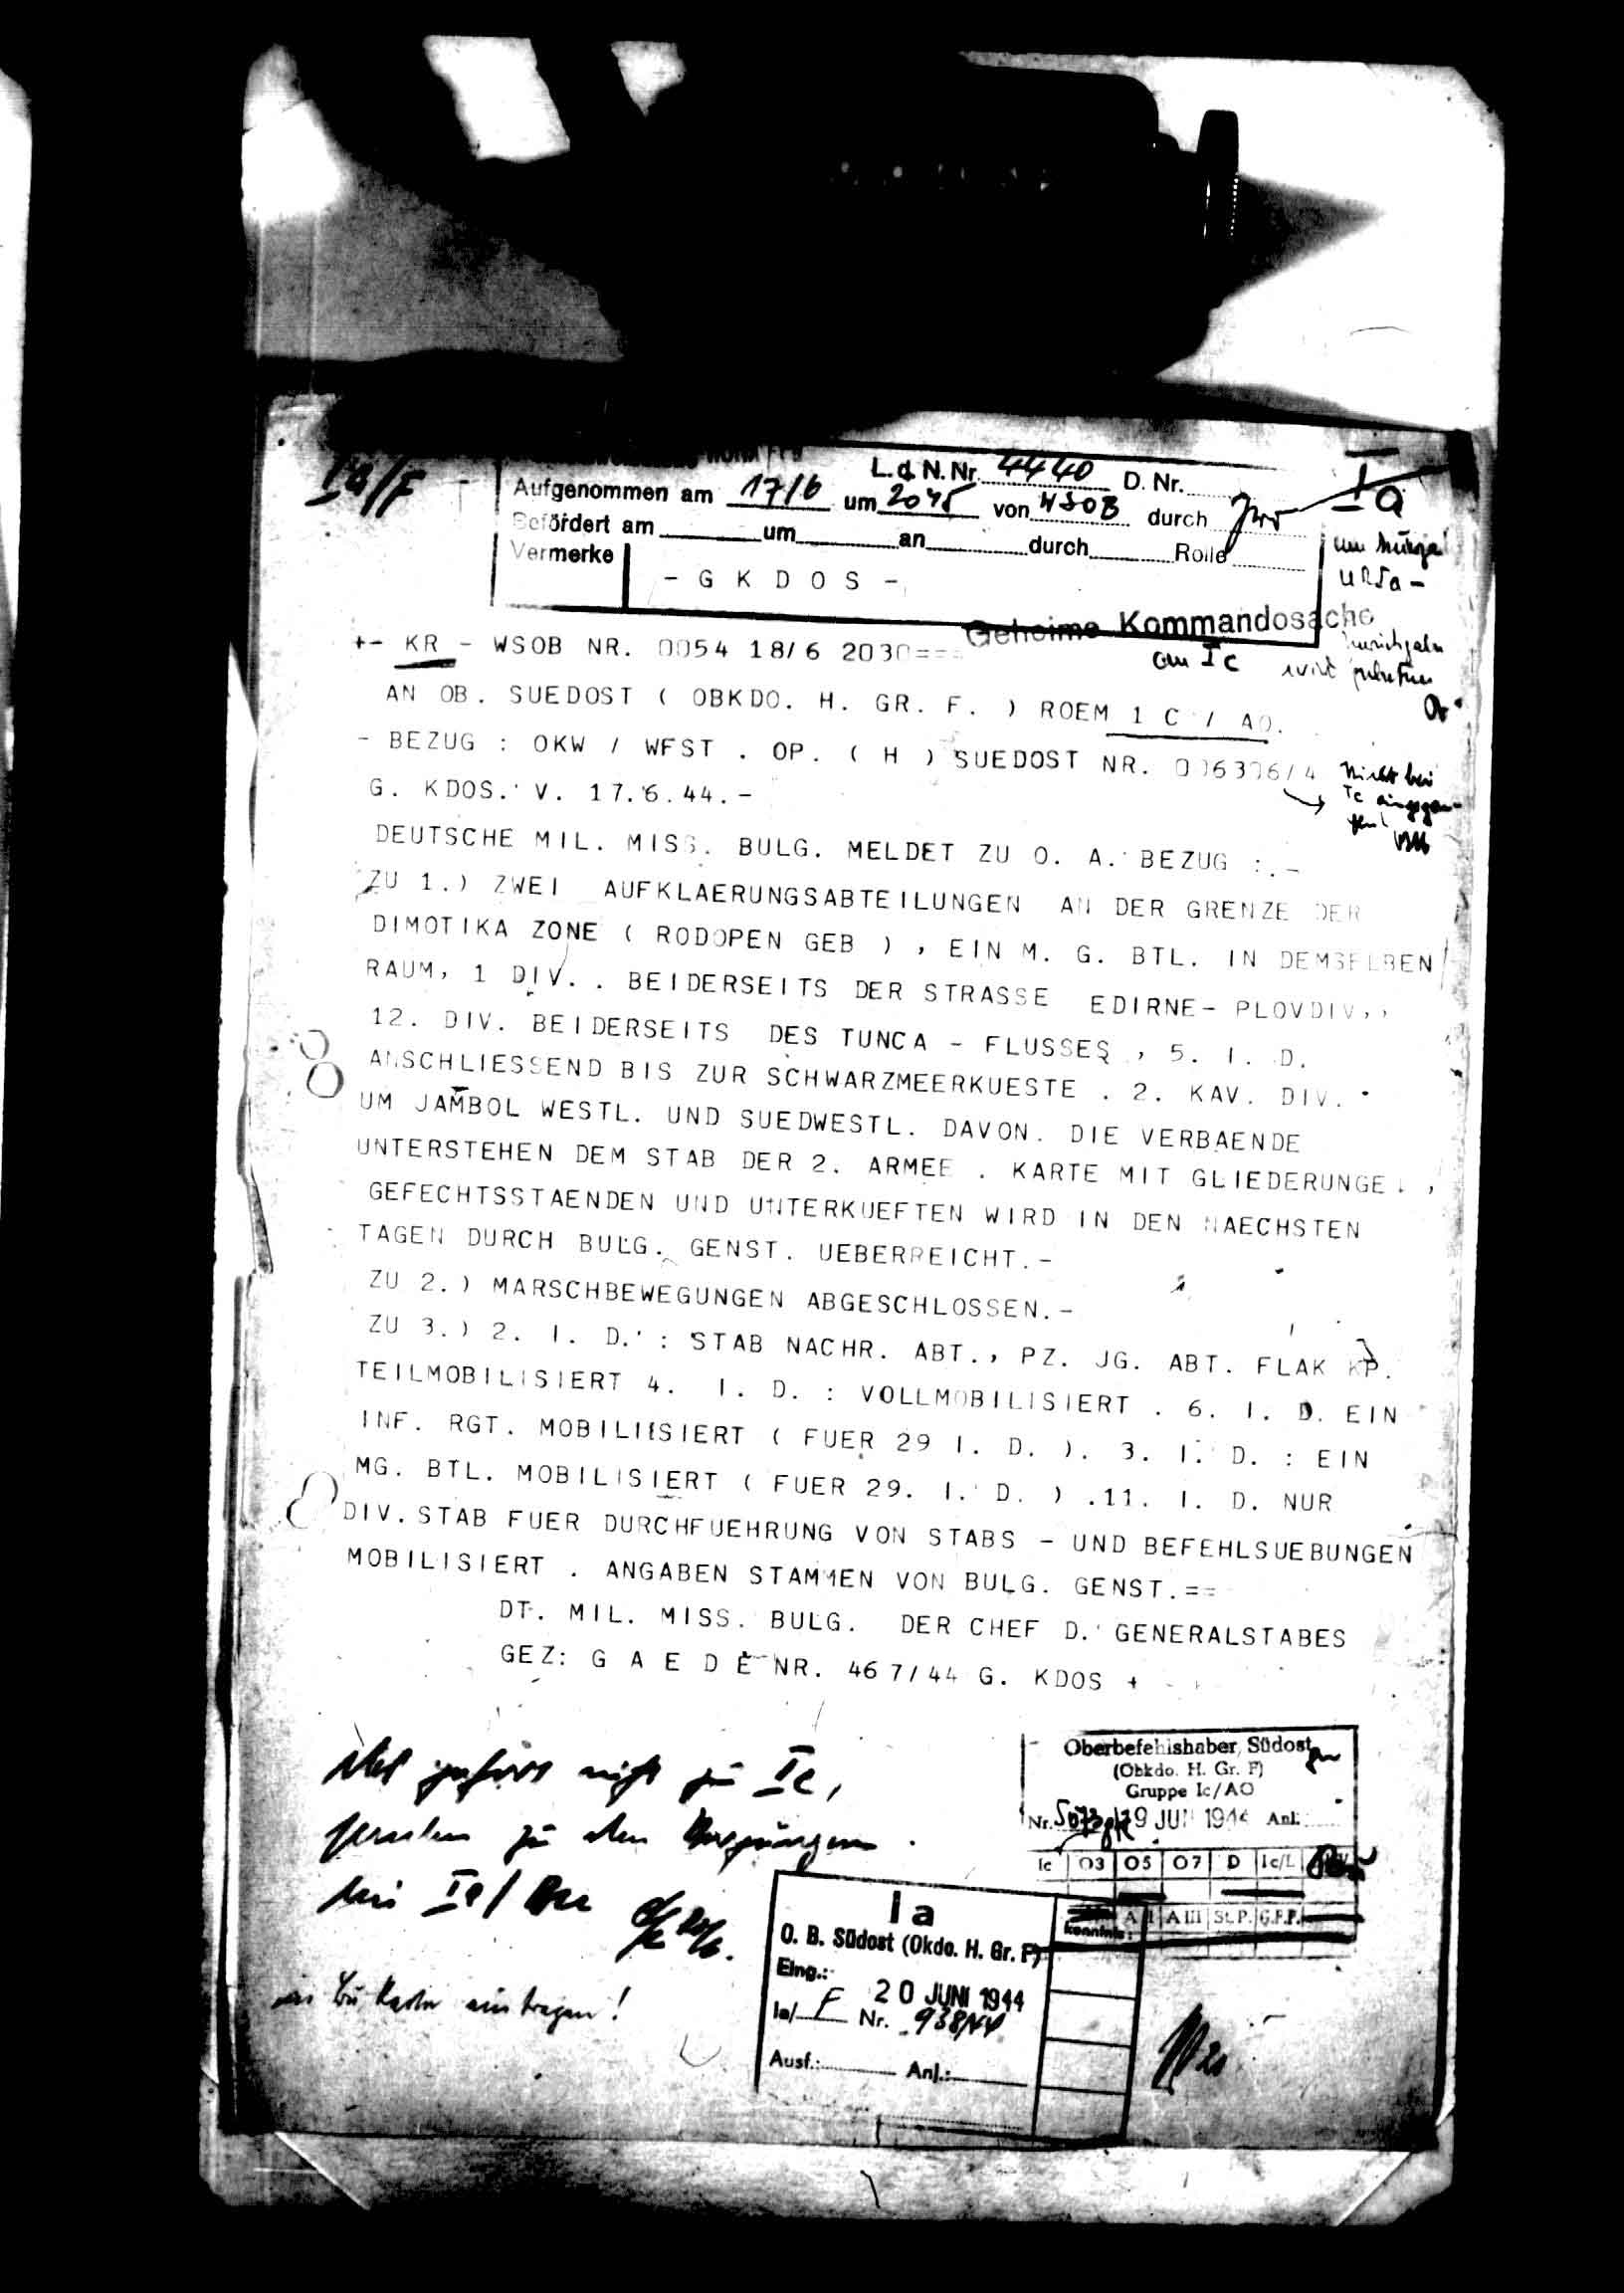 Ia/F
L.d.N.Nr. 4440 D. Nr.
Aufgenommen am 17/6 um 2045 von WSOB durch
Befördert am um an durch Rolle
Vermerke
- G K D O S -
Ia
Geheime Kommandosache
+- KR - WSOB NR. 0054 18/6 2030===
an Ic
AN OB. SUEDOST ( OBKDO. H. GR. F. ) ROEM 1 C / AO.
- BEZUG : OKW / WFST . OP. ( H ) SUEDOST NR. 006306/4
G. KDOS. V. 17.6.44.-
Nicht bei
Ic
DEUTSCHE MIL. MISS. BULG. MELDET ZU O. A. BEZUG :.-
ZU 1.) ZWEI AUFKLAERUNGSABTEILUNGEN AN DER GRENZE DER
DIMOTIKA ZONE ( RODOPEN GEB ) , EIN M. G. BTL. IN DEMSELBEN
RAUM, 1 DIV. . BEIDERSEITS DER STRASSE EDIRNE- PLOVDIV,,
12. DIV. BEIDERSEITS DES TUNCA - FLUSSES , 5. I. D.
ANSCHLIESSEND BIS ZUR SCHWARZMEERKUESTE . 2. KAV. DIV.
UM JAMBOL WESTL. UND SUEDWESTL. DAVON. DIE VERBAENDE
UNTERSTEHEN DEM STAB DER 2. ARMEE . KARTE MIT GLIEDERUNGEN ,
GEFECHTSSTAENDEN UND UNTERKUEFTEN WIRD IN DEN NAECHSTEN
TAGEN DURCH BULG. GENST. UEBERREICHT.-
ZU 2.) MARSCHBEWEGUNGEN ABGESCHLOSSEN.-
ZU 3.) 2. I. D. : STAB NACHR. ABT., PZ. JG. ABT. FLAK KP.
TEILMOBILISIERT 4. I. D. : VOLLMOBILISIERT . 6. I. D. EIN
INF. RGT. MOBILIISIERT ( FUER 29 I. D. ). 3. I. D. : EIN
MG. BTL. MOBILISIERT ( FUER 29. I. D. ) .11. I. D. NUR
DIV.STAB FUER DURCHFUEHRUNG VON STABS - UND BEFEHLSUEBUNGEN
MOBILISIERT . ANGABEN STAMMEN VON BULG. GENST.==
DT. MIL. MISS. BULG. DER CHEF D. GENERALSTABES
GEZ: G A E D E NR. 467/44 G. KDOS +
gehört nicht zu Ic,
sondern zu den Vorgängen
bei Ia/
eintragen!
Oberbefehlshaber Südost
(Obkdo. H. Gr. F)
Gruppe Ic/AO
Nr. 19 JUN 1944 Anl:
Ic O3 O5 O7 D Ic/L
A III St.P. G.F.P.
kenntnis:
Ia
O. B. Südost (Okdo. H. Gr. F)
Eing.:
20 JUNI 1944
Ia/ F Nr. 938/44
Ausf.: Anl.: